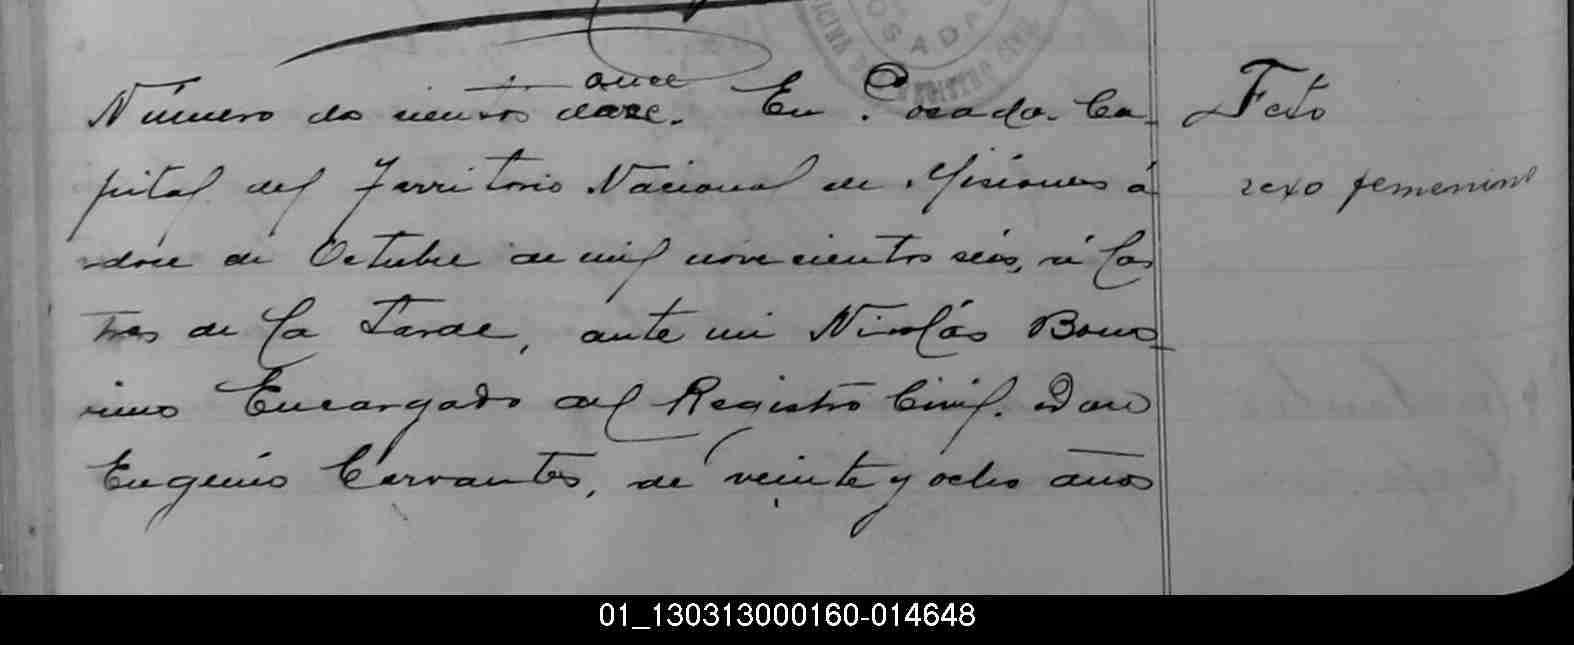 OSADA
once
Número doscientos doce. En Posadas Ca-
pital del Territorio Nacional de Misiones á
doce de Octubre de mil novecientos séis, á las
tres de la Tarde, ante mi Nicolás Bono-
rino Encargado del Registro Civil. Don
Eugenio Cervantes, de veinte y ocho años
Feto
sexo femenino
01_130313000160-014648